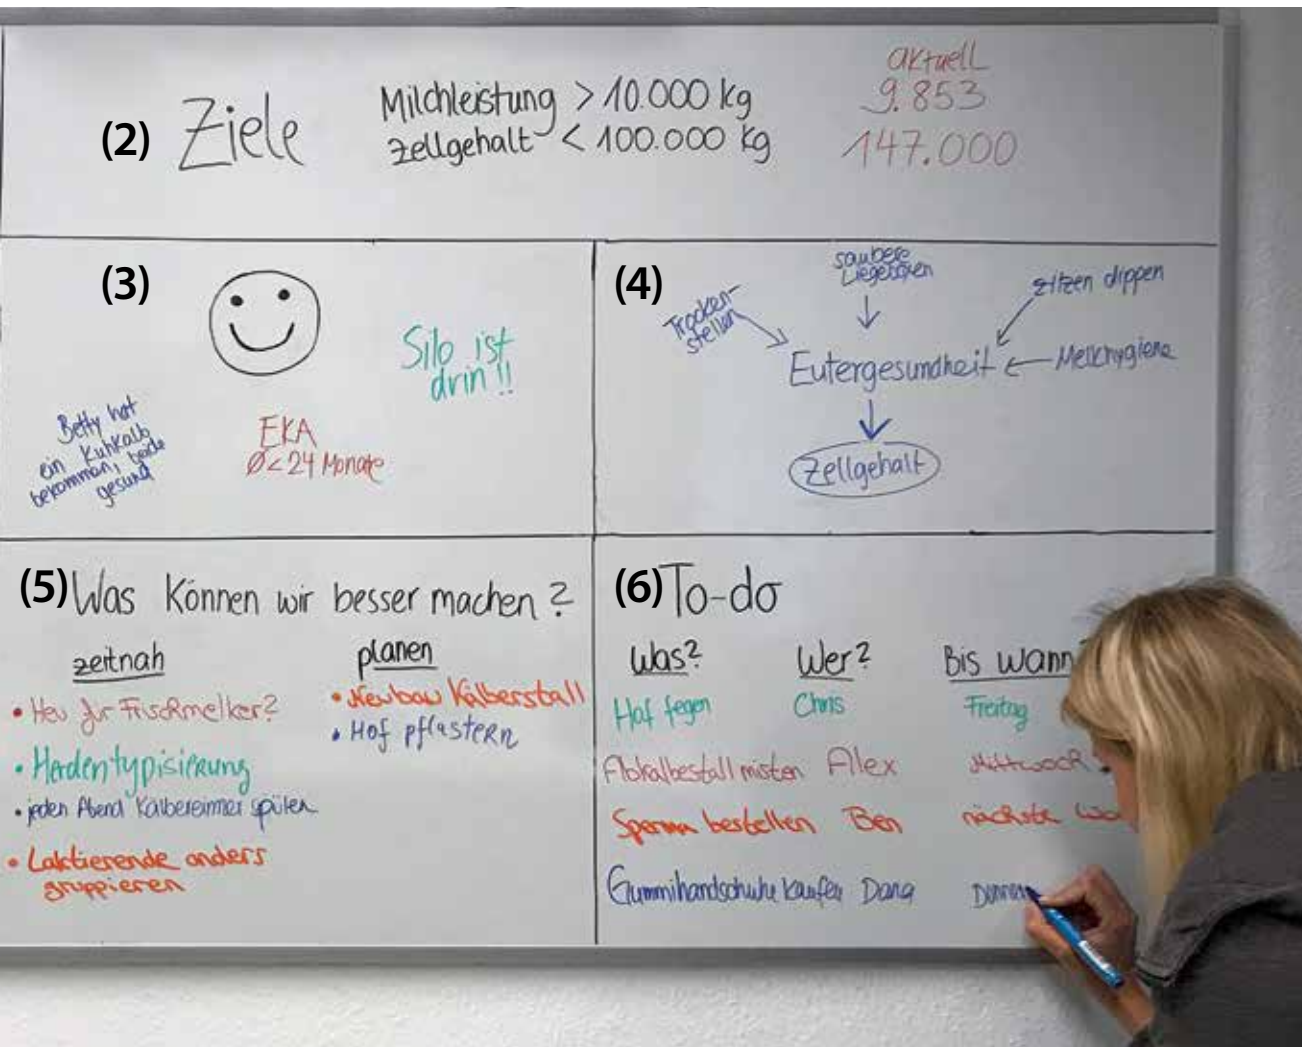 (2) Ziele
Milchleistung > 10.000 kg
Zellgehalt < 100.000 kg
aktuell
9.853
147.000
(3)
Silo ist
drin!!
Betty hat
ein Kuhkalb
bekommen, beide
gesund
EKA
Ø < 24 Monate
(4)
Trocken-
stellen
saubere
Liegeboxen
Zitzen dippen
Eutergesundheit
Melkhygiene
Zellgehalt
(5) Was können wir besser machen?
zeitnah
• Heu für Frischmelker?
• Herdentypisierung
• jeden Abend Kälbereimer spülen
• Laktierende anders
gruppieren
planen
• Neubau Kälberstall
• Hof pflastern
(6) To-do
Was? Wer? Bis wann?
Hof fegen Chris Freitag
Abkalbestall misten Alex Mittwoch
Sperma bestellen Ben nächste Wo
Gummihandschuhe kaufen Dana Donners